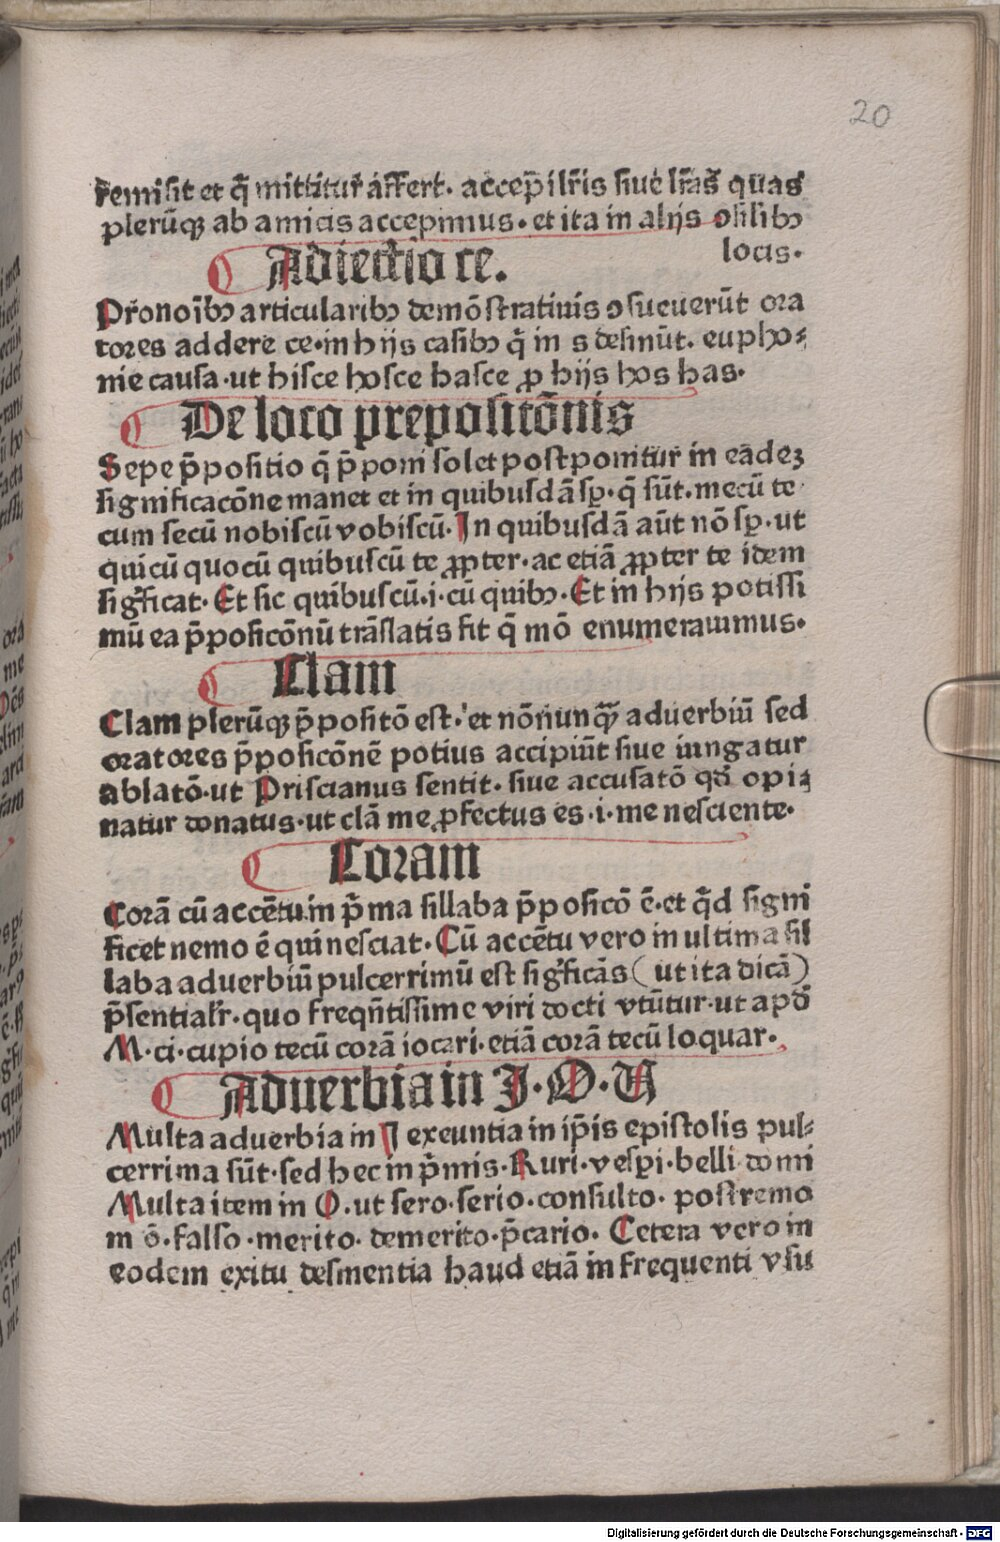 20
remisit et q̄ mittitur affert. accep̄ ilr̄is siue lr̄as quas
plerūqꝫ ab amicis accepimus. et ita in alijs ꝯsilibꝰ
locis.
Adiectio ce.
Pr̄onoīb⁹ articularib⁹ demōstratiuis ꝯsueuerūt ora
tores addere ce. in hijs casib⁹ q̄ in s desinūt. eupho⸗
nie causa. ut hisce hosce hasce ꝓ hijs hos has.
De loco prepositōnis
Sepe p̄positio q̄ p̄poni solet postponitur in eādeꝫ
significacōne manet et in quibusdā sꝑ. q̄ sūt. mecū te
cum secū nobiscū vobiscū. In quibusdā aūt nō sꝑ. ut
quicū quocū quibuscū te ꝓpter. ac etiā ꝓpter te idem
sigficat. Et sic quibuscū. i. cū quib⁹. Et in hijs potissi
mū ea p̄posicōnū trāslatis fit q̄ mō enumerauimus.
Clam
Clam plerūqꝫ p̄positō est. et nōnunqꝫ aduerbiū sed
oratores p̄posicōnē potius accipiūt siue iungatur
ablatō. ut Priscianus sentit. siue accusatō qd̄ opi⸗
natur donatus. ut clā me ꝓfectus es. i. me nesciente.
Coram
Corā cū accētu in p̄ma sillaba p̄posicō ē. et q̄d signi
ficet nemo ē qui nesciat. Cū accētu vero in ultima sil
laba aduerbiū pulcerrimū est sigficās (ut ita dicā)
p̄sentialr̄. quo freqn̄tissime viri docti vtūtur. ut apd̄
M. ci. cupio tecū corā iocari. etiā corā tecū loquar.
Aduerbia in I. O. U
Multa aduerbia in I exeuntia in ip̄is epistolis pul⸗
cerrima sūt. sed hec in p̄mis. Ruri. vesꝑi. belli. domi
Multa item in O. ut sero. serio. consulto. postremo
in ō. falso. merito. demerito. p̄cario. Cetera vero in
eodem exitu desinentia haud etiā in frequenti vsu
Digitalisierung gefördert durch die Deutsche Forschungsgemeinschaft - DFG